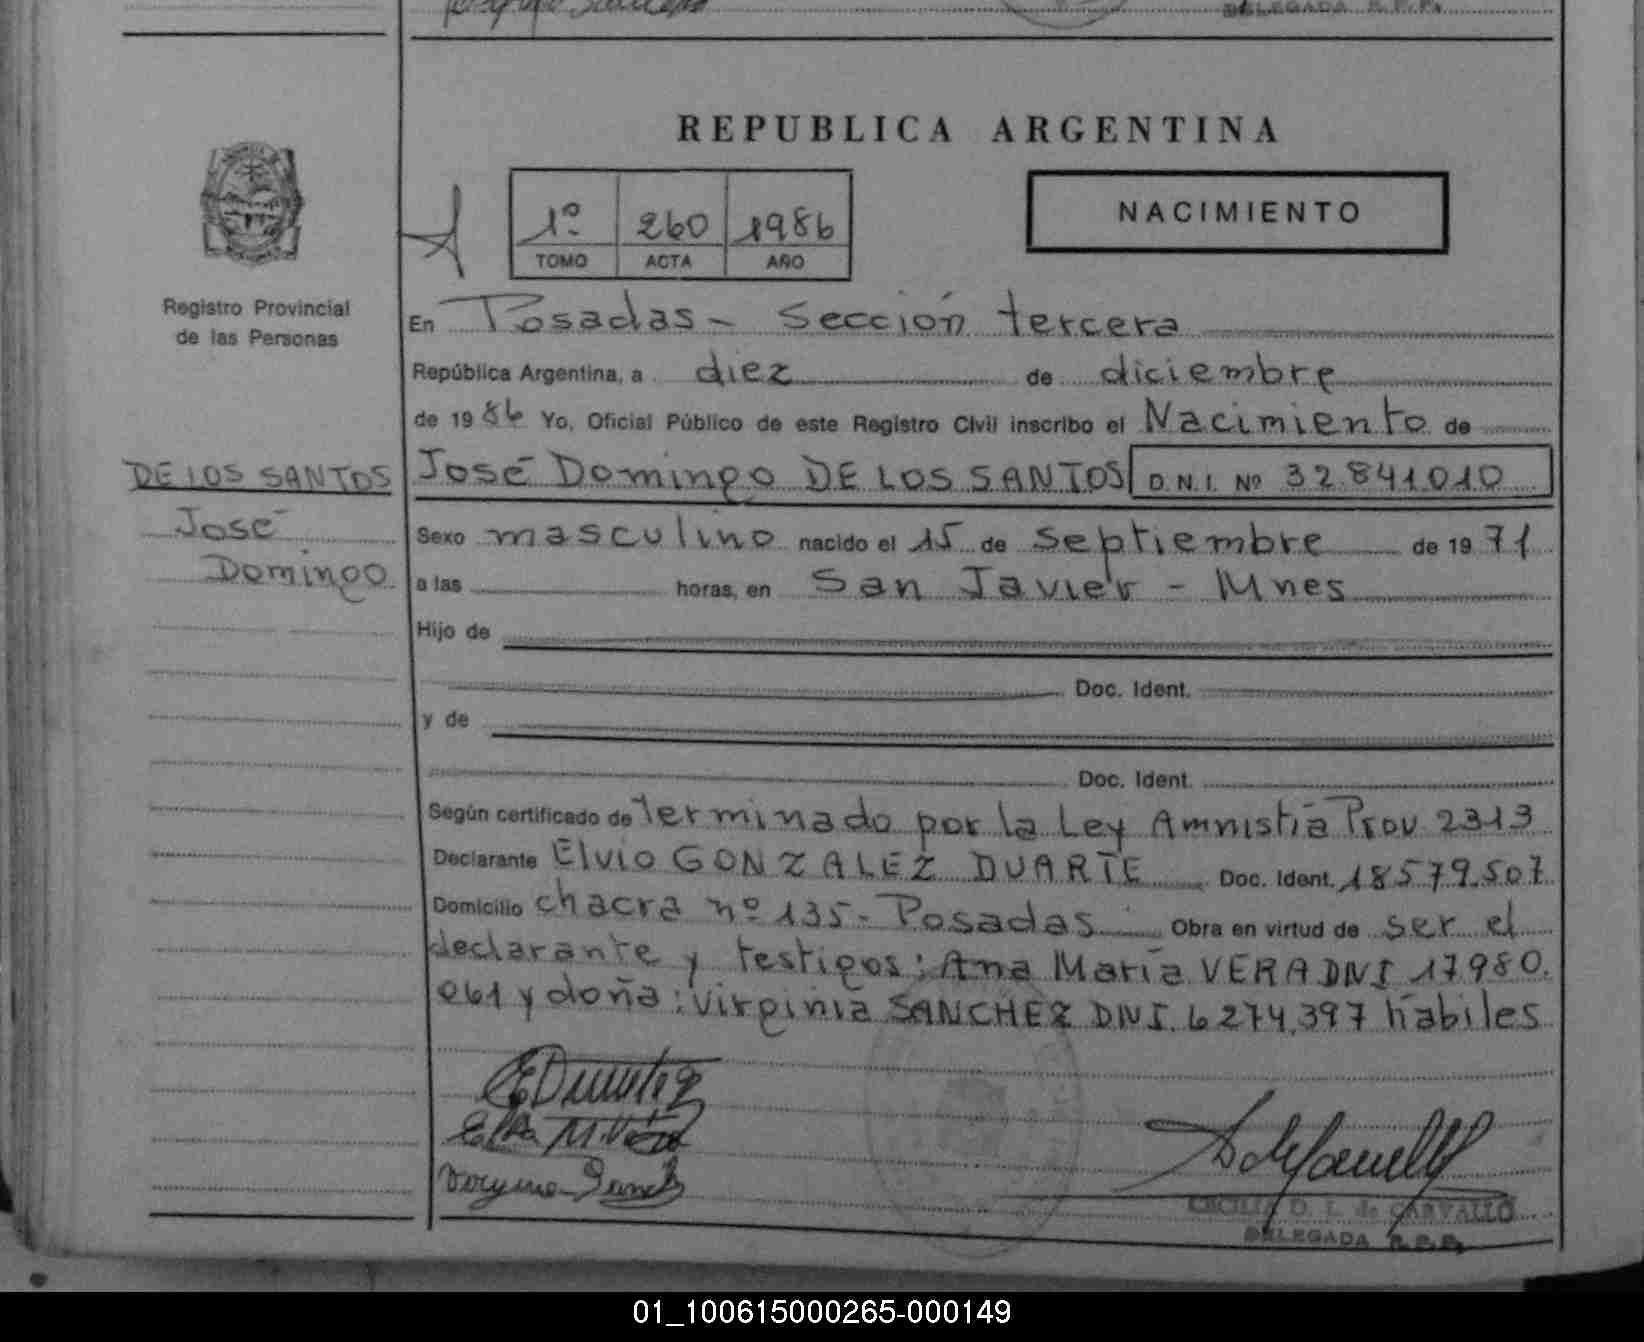 DELEGADA R.P.P.
REPUBLICA ARGENTINA
1º 260 1986
TOMO ACTA AÑO
NACIMIENTO
Registro Provincial
de las Personas
En Posadas - Sección tercera
República Argentina, a diez de diciembre
de 1986 Yo, Oficial Público de este Registro Civil inscribo el Nacimiento de
DE LOS SANTOS
José
Domingo
José Domingo DE LOS SANTOS D.N.I. Nº 32.841.010
Sexo masculino nacido el 15 de septiembre de 1971
a las horas, en San Javier - Mnes
Hijo de
Doc. Ident.
y de
Doc. Ident.
Según certificado de Terminado por la Ley Amnistía Prov. 2313
Declarante Elvio GONZALEZ DUARTE Doc. Ident. 18579.507
Domicilio chacra nº 135 - Posadas Obra en virtud de ser el
declarante y testigos: Ana María VERA DNI 17980.
061 y doña: Virginia SANCHEZ DNI. 6274.397 hábiles
CECILIA D. L. de CARVALLO
DELEGADA R.P.P.
01_100615000265-000149